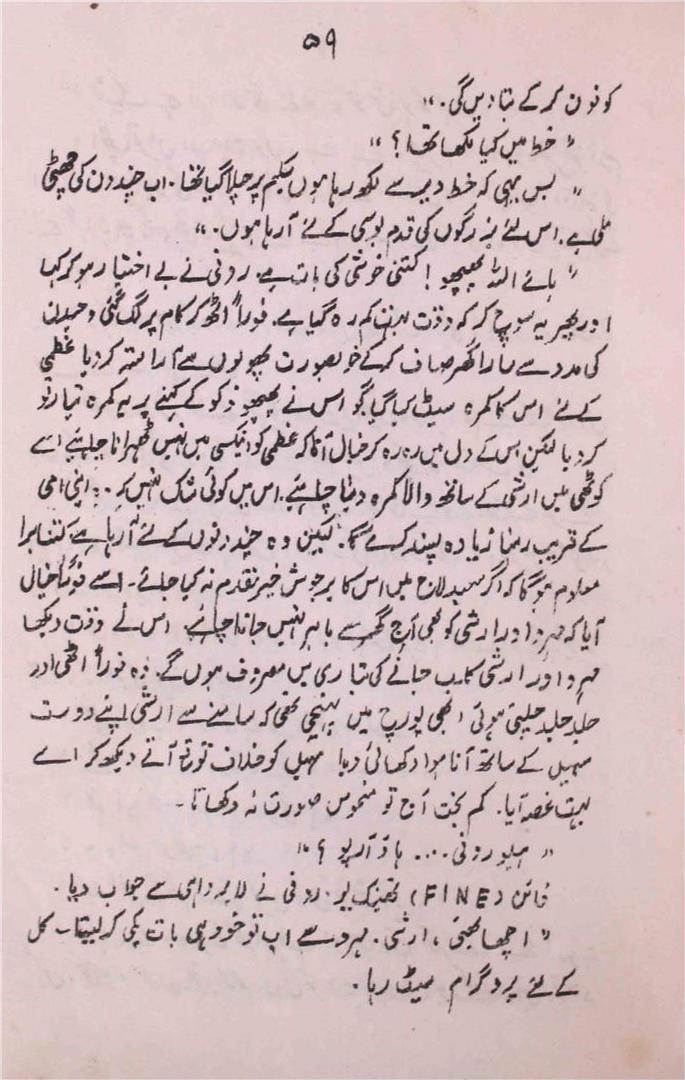 ۵۹
کو فون کر کے بتا دیں گی۔"
"خط میں کیا لکھا تھا؟"
"بس یہی کہ خط دیر سے لکھ رہا ہوں سکیم پر چلا گیا تھا۔ اب چند دن کی چھٹی
ملی ہے۔ اس لئے بزرگوں کی قدم بوسی کے لئے آ رہا ہوں۔"
"ہائے اللہ پھپھو! کتنی خوشی کی بات ہے۔ رونی نے بے اختیار ہو کر کہا
اور پھر یہ سوچ کر کہ وقت بہت کم رہ گیا ہے۔ فوراً اٹھ کر کام پر لگ گئی وحیدن
کی مدد سے سارا گھر صاف کر کے خوبصورت پھولوں سے آراستہ کر دیا عظمی
کے لئے اس کا کمرہ سیٹ کیا گیا گو اس نے پھپھو ذکو کے کہنے پر یہ کمرہ تیار تو
کر دیا لیکن اس کے دل میں رہ رہ کر خیال آتا کہ عظمی کو انیکسی میں نہیں ٹھہرانا چاہیئے اسے
کوٹھی میں ارشی کے ساتھ والا کمرہ دینا چاہیئے۔ اس میں کوئی شک نہیں کہ وہ اپنی امی
کے قریب رہنا زیادہ پسند کرے گا۔ لیکن وہ چند دنوں کے لئے آ رہا ہے کتنا برا
معلوم ہو گا کہ اگر سعید لاج میں اس کا پرجوش خیر مقدم نہ کیا جائے۔ اسے فوراً خیال
آیا کہ مہرو اور ارشی کو بھی آج گھر سے باہر نہیں جانا چاہیئے۔ اس نے وقت دیکھا
مہرو اور ارشی کلب جانے کی تیاری میں مصروف ہوں گے۔ وہ فوراً اٹھی اور
جلد جلد چلتی ہوئی ابھی پورچ میں پہنچی تھی کہ سامنے سے ارشی اپنے دوست
سہیل کے ساتھ آتا ہوا دکھائی دیا سہیل کو خلاف توقع آتے دیکھ کر اسے
بہت غصہ آیا۔ کم بخت آج تو منحوس صورت نہ دکھاتا۔
"ہیلو رونی .... ہاؤ آر یو؟"
فائن (FINE) تھینک یو۔ رونی نے لاپرواہی سے جواب دیا۔
"اچھا بھئی، ارشی۔ مہرو سے اب تو خود ہی بات پکی کر لینا۔ کل
کے لئے پروگرام سیٹ رہا۔